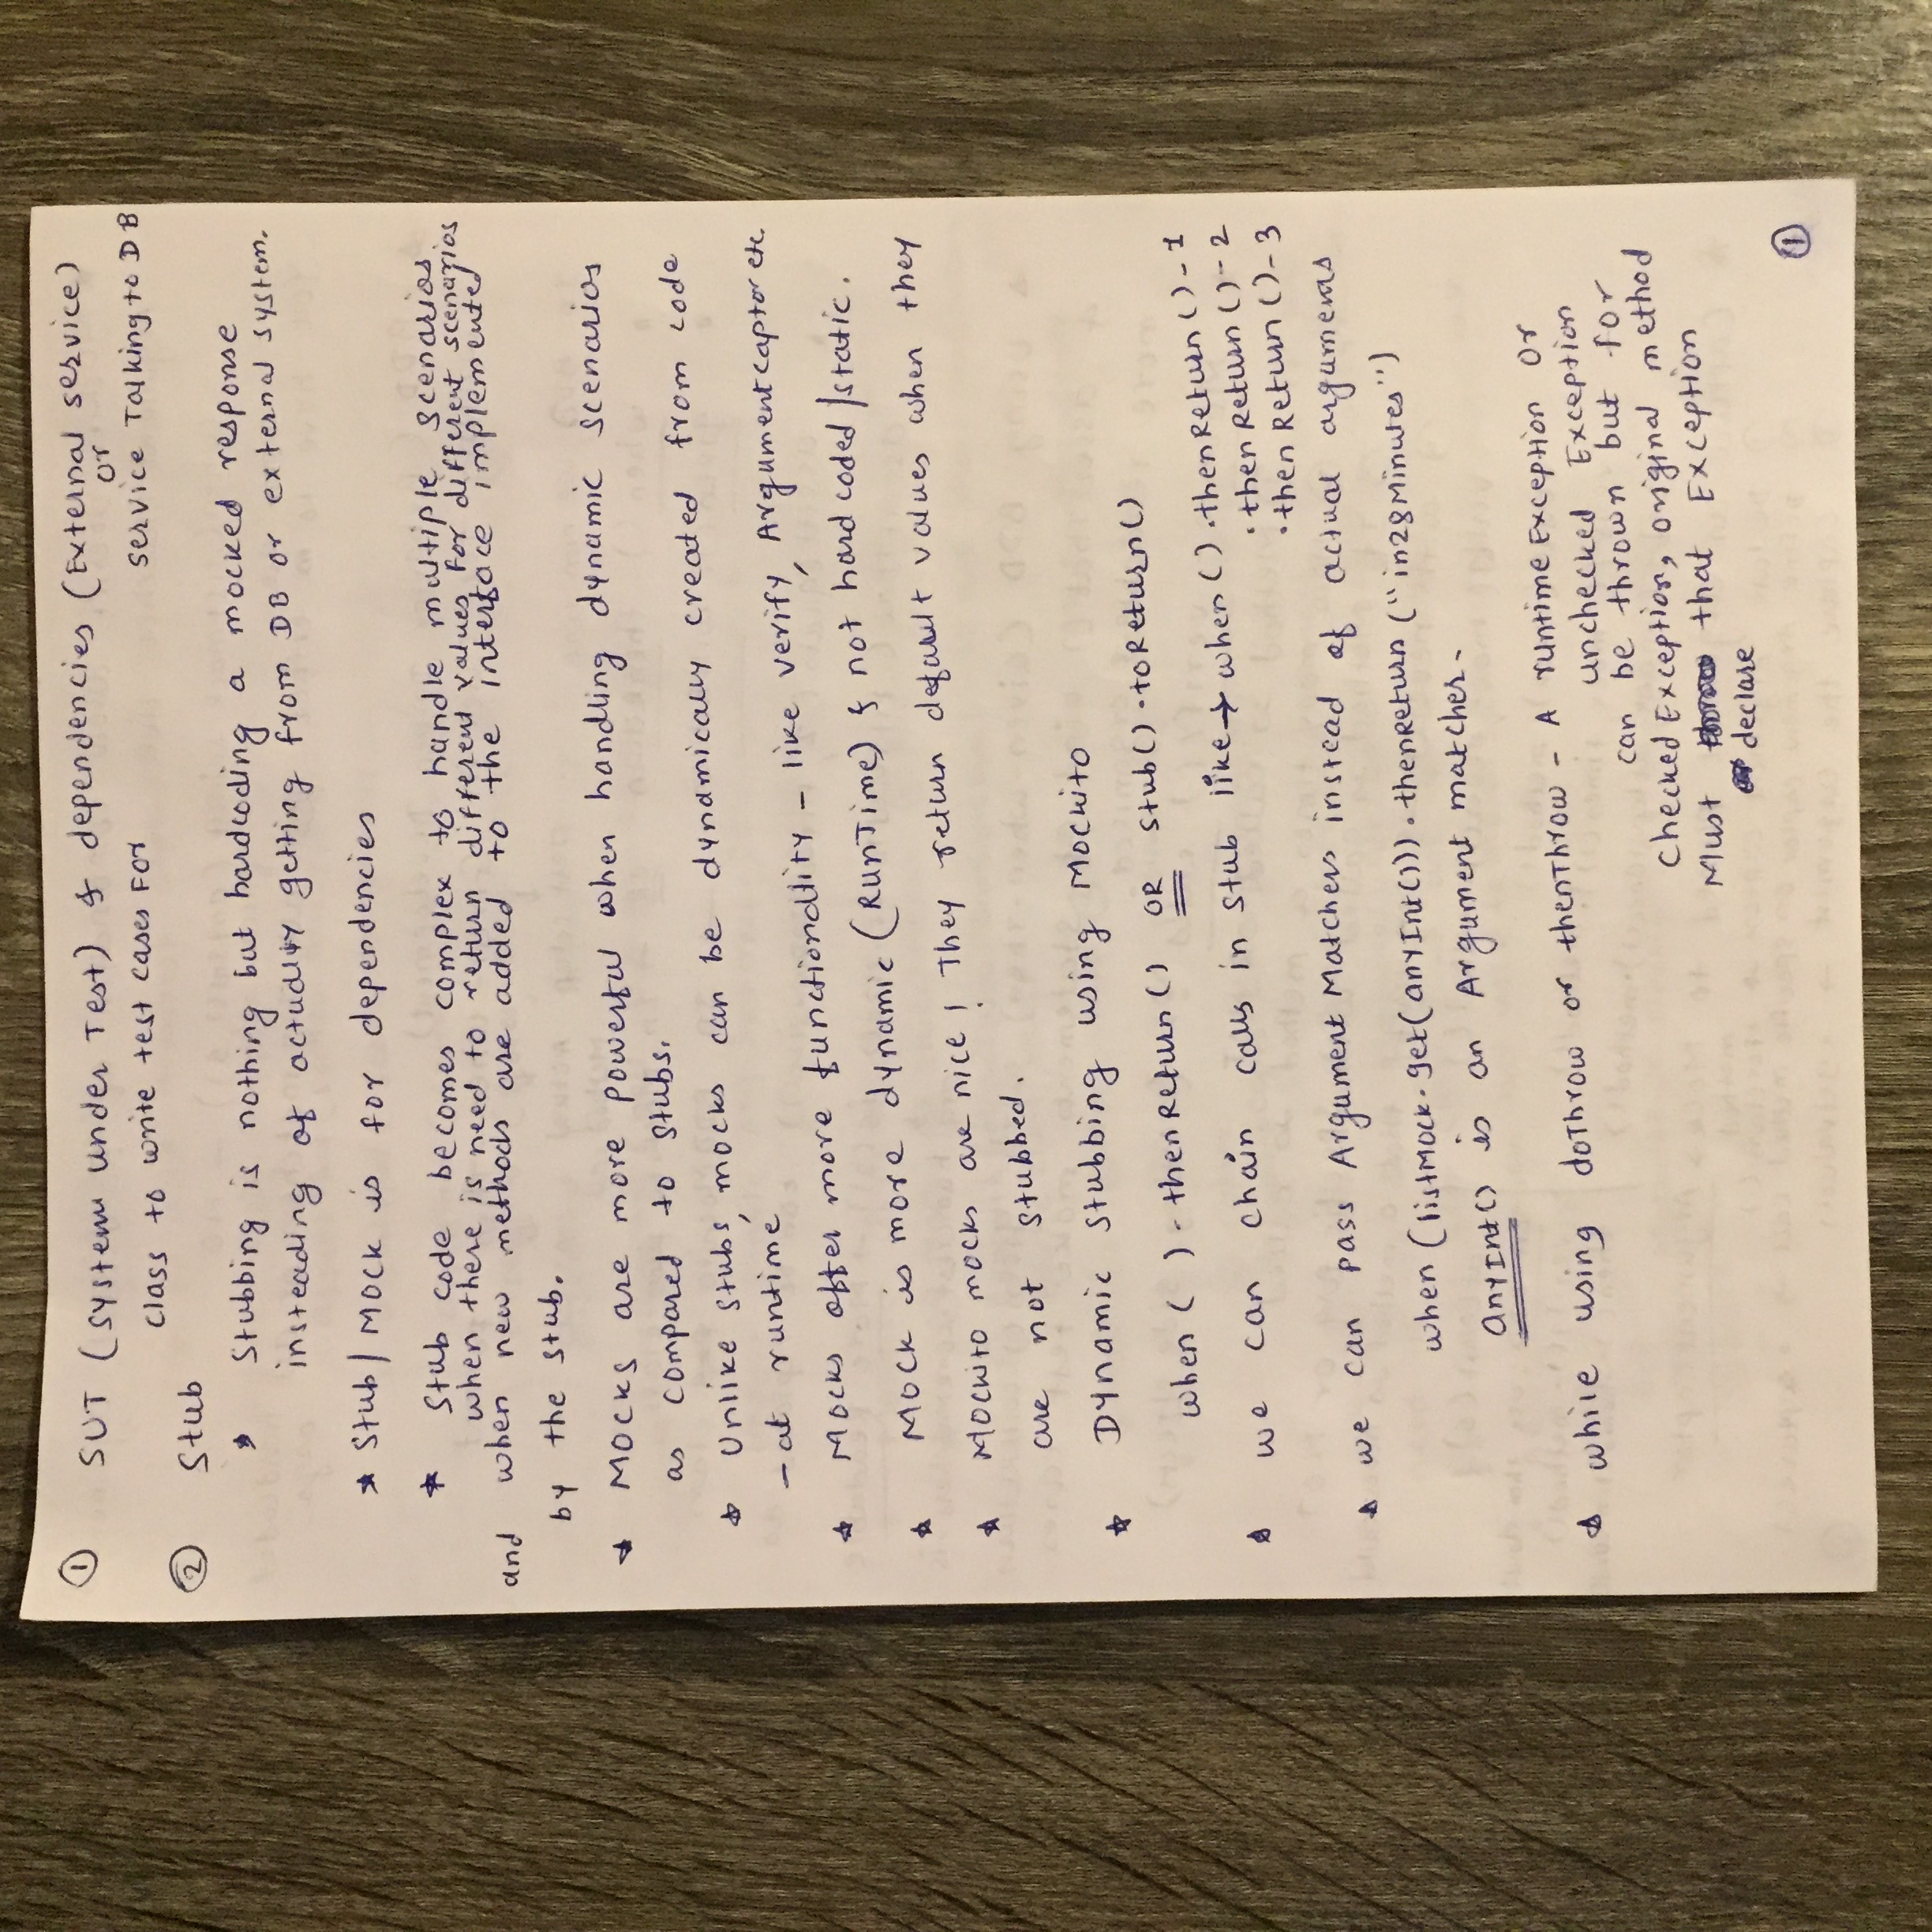 ① SUT (system under Test) & dependencies (External service)
or
class to write test cases For
service Talking to DB
② Stub
* Stubbing is nothing but hardcoding a mocked response
insteading of actually getting from DB or external system.
* Stub/Mock is for dependencies
* Stub code becomes complex to handle multiple scenarios
when there is need to return different values for different scenarios
and when new methods are added to the interface implemented
by the stub.
* Mocks are more powerful when handling dynamic scenarios
as compared to stubs.
* Unlike stubs, mocks can be dynamically created from code
- at runtime
* Mocks offer more functionality - like verify, Argumentcaptor etc.
* Mock is more dynamic (RunTime) & not hard coded/static.
* Mockito mocks are nice! They return default values when they
are not stubbed.
* Dynamic stubbing using Mockito
when ( ).thenReturn() OR stub().toReturn()
* we can chain calls in stub like → when().thenReturn()-1
.thenReturn()-2
.thenReturn()-3
* we can pass Argument Matchers instead of actual arguments
when (listMock.get(anyInt())).thenReturn ("in28Minutes")
anyInt() is an Argument matcher.
* while using doThrow or thenThrow - A runtimeException or
unchecked Exception
can be thrown but for
checked Exception, original method
Must that Exception
declare
①